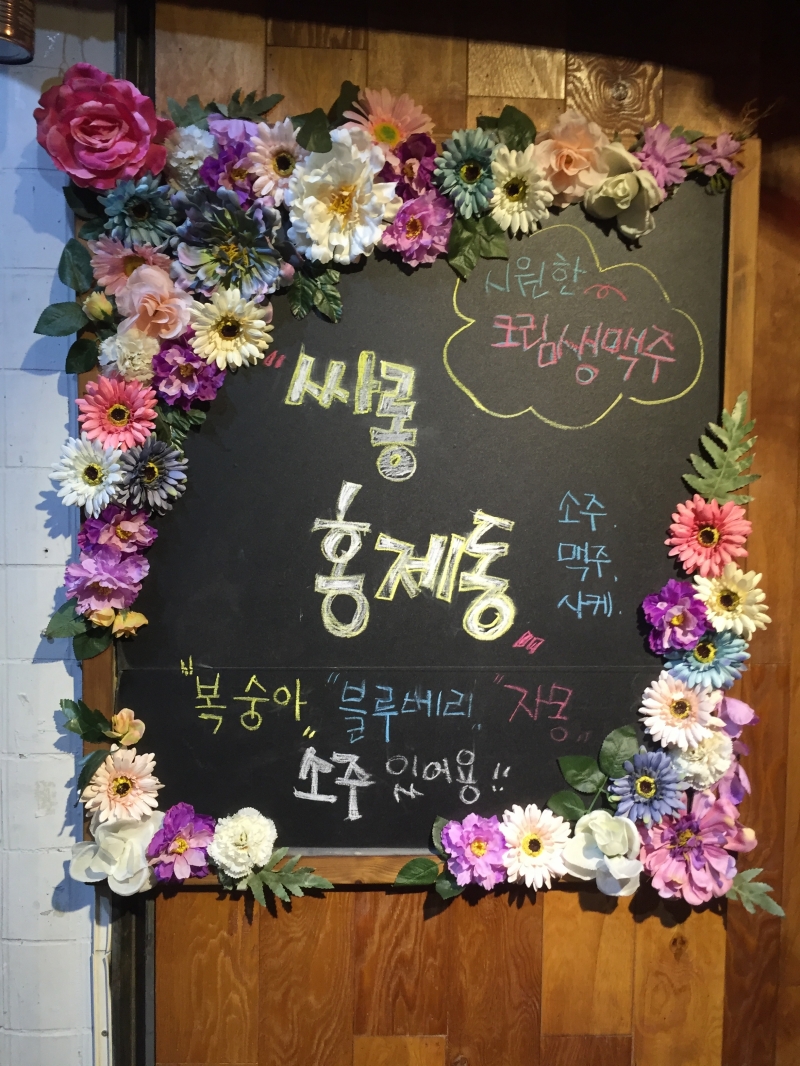 시원한
크림생맥주
"싸롱
홍제동"
소주.
맥주.
사케.
"복숭아" "블루베리" "자몽"
소주 있어용!!